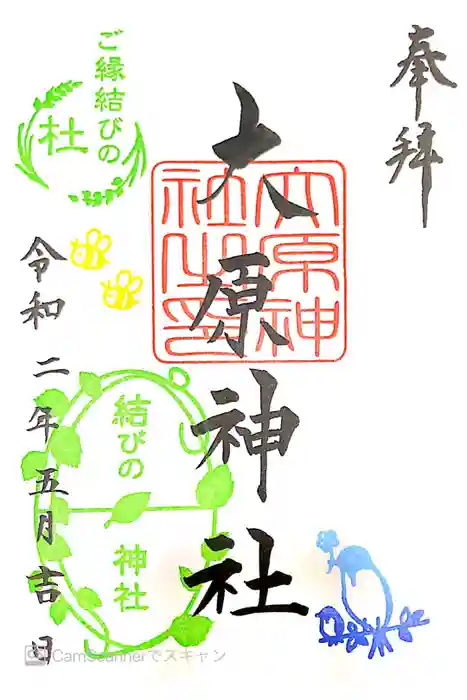 奉拝
大原神社
大原神社之印
ご縁結びの
杜
結びの
神社
令和二年五月吉日
CamScannerでスキャン